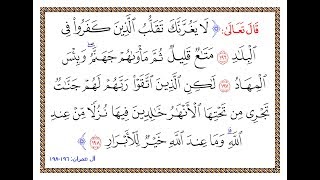 قَالَ تَعَالَى: ﴿ لَا يَغُرَّنَّكَ تَقَلُّبُ الَّذِينَ كَفَرُوا۟ فِي
الْبِلَٰدِ ١٩٦ مَتَٰعٌ قَلِيلٌ ثُمَّ مَأْوَىٰهُمْ جَهَنَّمُ ۖ وَبِئْسَ
الْمِهَادُ ١٩٧ لَٰكِنِ الَّذِينَ اتَّقَوْا۟ رَبَّهُمْ لَهُمْ جَنَّٰتٌ
تَجْرِي مِن تَحْتِهَا الْأَنْهَٰرُ خَٰلِدِينَ فِيهَا نُزُلًا مِّنْ عِندِ
اللَّهِ ۗ وَمَا عِندَ اللَّهِ خَيْرٌ لِّلْأَبْرَارِ ١٩٨ ﴾
آل عمران: ١٩٦-١٩٨